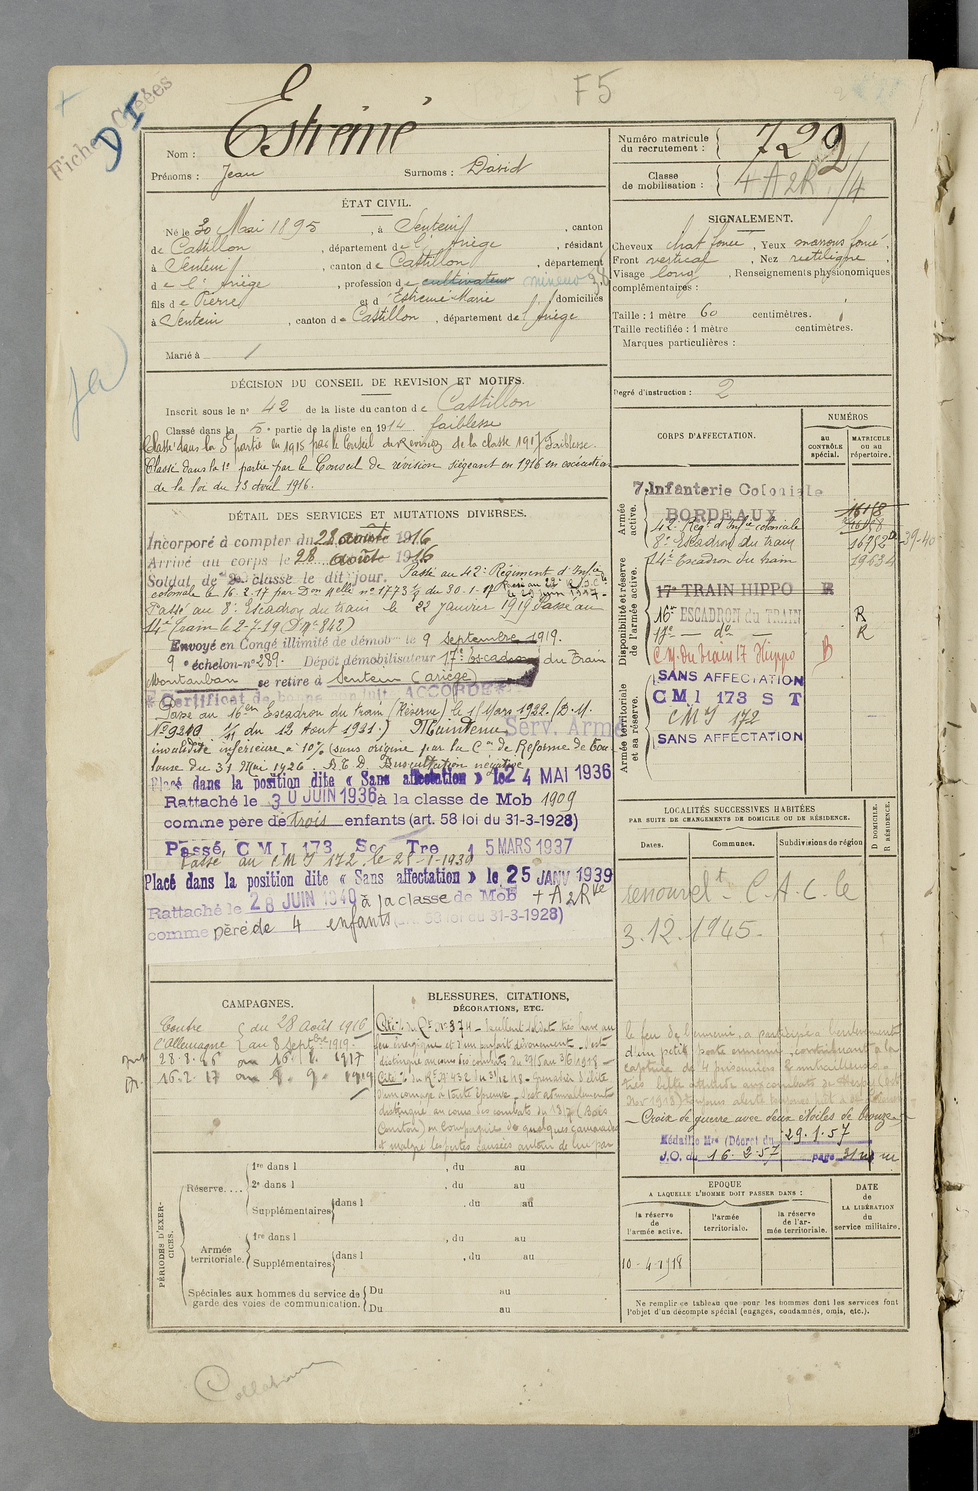 Fiches Créées
D I
F5
Nom : Estrémé
Prénoms : Jean Surnoms : David
Numéro matricule du recrutement : 729
Classe de mobilisation :
ÉTAT CIVIL.
Né le 30 Mai 1895, à Sentein, canton
de Castillon, département de l'Ariège, résidant
à Sentein, canton de Castillon, département
de l'Ariège, profession de cultivateur mineur
fils de Pierre et d'Estrémé Marie, domiciliés
à Sentein, canton de Castillon, département de l'Ariège
Marié à
SIGNALEMENT.
Cheveux chat foncé, Yeux marrons foncé,
Front vertical, Nez rectiligne,
Visage long, Renseignements physionomiques
complémentaires :
Taille : 1 mètre 60 centimètres.
Taille rectifiée : 1 mètre centimètres.
Marques particulières :
Degré d'instruction : 2
DÉCISION DU CONSEIL DE REVISION ET MOTIFS.
Inscrit sous le nº 42 de la liste du canton de Castillon
Classé dans la 5e partie de la liste en 1914. faiblesse
Classé dans la 5e partie en 1915 par le Conseil de Revision de la classe 1917 Faiblesse.
Classé dans la 1e partie par le Conseil de révision siégeant en 1916 en exécution
de la loi du 13 Avril 1916.
DÉTAIL DES SERVICES ET MUTATIONS DIVERSES.
Incorporé à compter du 28 août 1916
Arrivé au corps le 28 août 1916
Soldat de 2e classe le dit jour. Passé au 42e Régiment d'Infie
coloniale le 16.2.17 par Don Melle nº 1773/9 du 30.1.17
le 29 juin 1917-
Passé au 8e Escadron du train le 22 Janvier 1919 Passé au
14e Train le 2-7-19 (Dp nº 842)
Envoyé en Congé illimité de démobon le 9 Septembre 1919.
9e échelon-nº 289. Dépôt démobilisateur 17e Escadron du Train
Montauban se retire à Sentein (Ariège)
Certificat de bonne conduite ACCORDÉ
Passé au 16em Escadron du train (Réserve) le 1er Mars 1922. (B.M.
Nº 9210 1/11 du 12 Aout 1921.) Maintenu Serv. Armé
invalidité inférieure à 10% (sans origine par la Con de Réforme de Tou-
louse du 31 Mai 1926. Auscultation négative
Placé dans la position dite « Sans affectation » le 24 MAI 1936
Rattaché le 30 JUIN 1936 à la classe de Mob 1909
comme père de trois enfants (art. 58 loi du 31-3-1928)
Passé, C M I 173 Son Tre 15 MARS 1937
Passé au C M I 172 le 25-1-1939
Placé dans la position dite « Sans affectation » le 25 JANV 1939
Rattaché le 28 JUIN 1940 à la classe de Mob + A 2 Rve
comme père de 4 enfants (art. 58 loi du 31-3-1928)
CORPS D'AFFECTATION.
NUMÉROS
au CONTRÔLE spécial.
MATRICULE OU au répertoire.
Armée active.
7. Infanterie Coloniale
BORDEAUX
42e Regt d'Infie coloniale
8e Escadron du train 16752
14e Escadron du train 19434
Disponibilité et réserve de l'armée active.
17e TRAIN HIPPO R
16e ESCADRON du TRAIN R
17e — do — R
CM du train 17 Hippo B
Armée territoriale et sa réserve.
SANS AFFECTATION
C M I 173 S T
C M I 172
SANS AFFECTATION
LOCALITÉS SUCCESSIVES HABITÉES
PAR SUITE DE CHANGEMENTS DE DOMICILE OU DE RÉSIDENCE.
Dates. Communes. Subdivisions de région
D DOMICILE. R RÉSIDENCE.
renouvelt. C.A.C. le
3.12.1945-
CAMPAGNES.
Contre du 28 Août 1916
l'Allemagne au 8 Septbre 1919-
28-8-16 au 16.2.1917
16.2.17 au 9.9.1919
BLESSURES, CITATIONS, DÉCORATIONS, ETC.
Cité à l'o. du Rt Nº 374 - Excellent soldat très brave au
feu énergique et d'un parfait dévouement. S'est
distingué au cours des combats du 29/5 au 3/6 1918 -
Cité à l'o. du Rt Nº 432 du 31/12/18 - Grenadier d'élite
d'un courage à toute épreuve. S'est admirablement
distingué au cours des combats du 18/7 (Bois
Courton) en Compagnie de quelques camarades
et malgré les pertes causées autour de lui par
le feu de l'ennemi, a participé à l'enlèvement
d'un petit poste ennemi, contribuant à la
capture de 4 prisonniers & mitrailleuses -
- Croix de guerre avec deux étoiles de bronze -
Médaille Mre (Décret du 29.1.57
J.O. du 16.2.57 page
PÉRIODES D'EXERCICES.
Réserve....
1re dans l , du au
2e dans l , du au
Supplémentaires dans l , du au
Armée territoriale.
1re dans l , du au
Supplémentaires dans l , du au
Spéciales aux hommes du service de garde des voies de communication.
Du au
Du au
EPOQUE
A LAQUELLE L'HOMME DOIT PASSER DANS :
la réserve de l'armée active.
l'armée territoriale.
la réserve de l'armée territoriale.
DATE de LA LIBÉRATION du service militaire.
10-4-1918
Ne remplir ce tableau que pour les hommes dont les services font
l'objet d'un décompte spécial (engagés, condamnés, omis, etc.).
Collationné